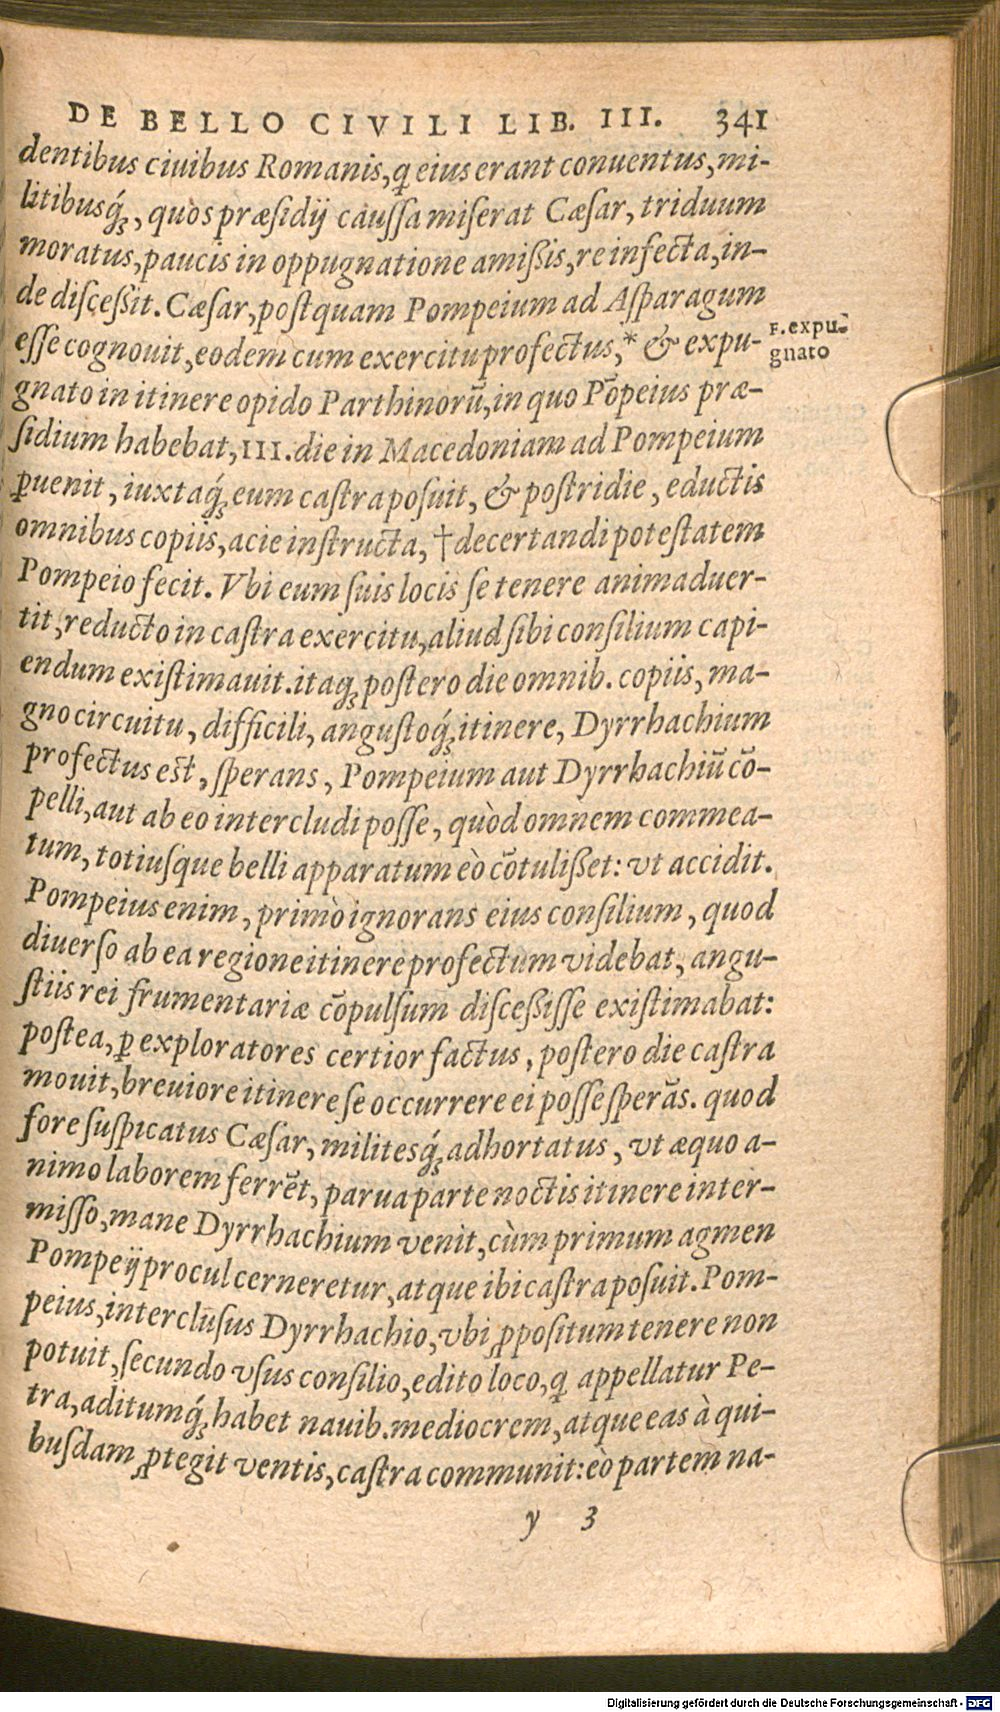 DE BELLO CIVILI LIB. III. 341
dentibus ciuibus Romanis, q̃ eius erant conuentus, mi-
litibusq́;, quos præsidij caussa miserat Cæsar, triduum
moratus, paucis in oppugnatione amißis, re infecta, in-
de disceßit. Cæsar, postquam Pompeium ad Asparagum
esse cognouit, eodem cum exercitu profectus,* & expu-
F. expu-
gnato
gnato in itinere opido Parthinorũ, in quo Põpeius præ-
sidium habebat, III. die in Macedoniam ad Pompeium
ꝑuenit, iuxtaq́; eum castra posuit, & postridie, eductis
omnibus copiis, acie instructa, †decertandi potestatem
Pompeio fecit. Vbi eum suis locis se tenere animaduer-
tit, reducto in castra exercitu, aliud sibi consilium capi-
endum existimauit. itaq; postero die omnib. copiis, ma-
gno circuitu, difficili, angustoq́; itinere, Dyrrhachium
profectus est, sperans, Pompeium aut Dyrrhachiũ cõ-
pelli, aut ab eo intercludi posse, quòd omnem commea-
tum, totiusque belli apparatum eò cõtulißet: vt accidit.
Pompeius enim, primò ignorans eius consilium, quod
diuerso ab ea regione itinere profectum videbat, angu-
stiis rei frumentariæ cõpulsum disceßisse existimabat:
postea, ꝑ exploratores certior factus, postero die castra
mouit, breuiore itinere se occurrere ei posse sperãs. quod
fore suspicatus Cæsar, militesq́; adhortatus, vt æquo a-
nimo laborem ferrẽt, parua parte noctis itinere inter-
misso, mane Dyrrhachium venit, cùm primum agmen
Pompeij procul cerneretur, atque ibi castra posuit. Pom-
peius, interclusus Dyrrhachio, vbi ꝓpositum tenere non
potuit, secundo vsus consilio, edito loco, q̃ appellatur Pe-
tra, aditumq́; habet nauib. mediocrem, atque eas à qui-
busdam ꝓtegit ventis, castra communit: eò partem na-
y 3
Digitalisierung gefördert durch die Deutsche Forschungsgemeinschaft - DFG